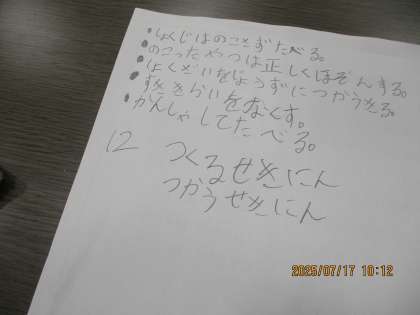 ・しょくじはのこさずたべる。
・のこったやつは正しくほぞんする。
・しょくざいをじょうずにつかうきる。
・すききらいをなくす。
・かんしゃしてたべる。
12 つくるせきにん
つかうせきにん
2025/07/17 10:12